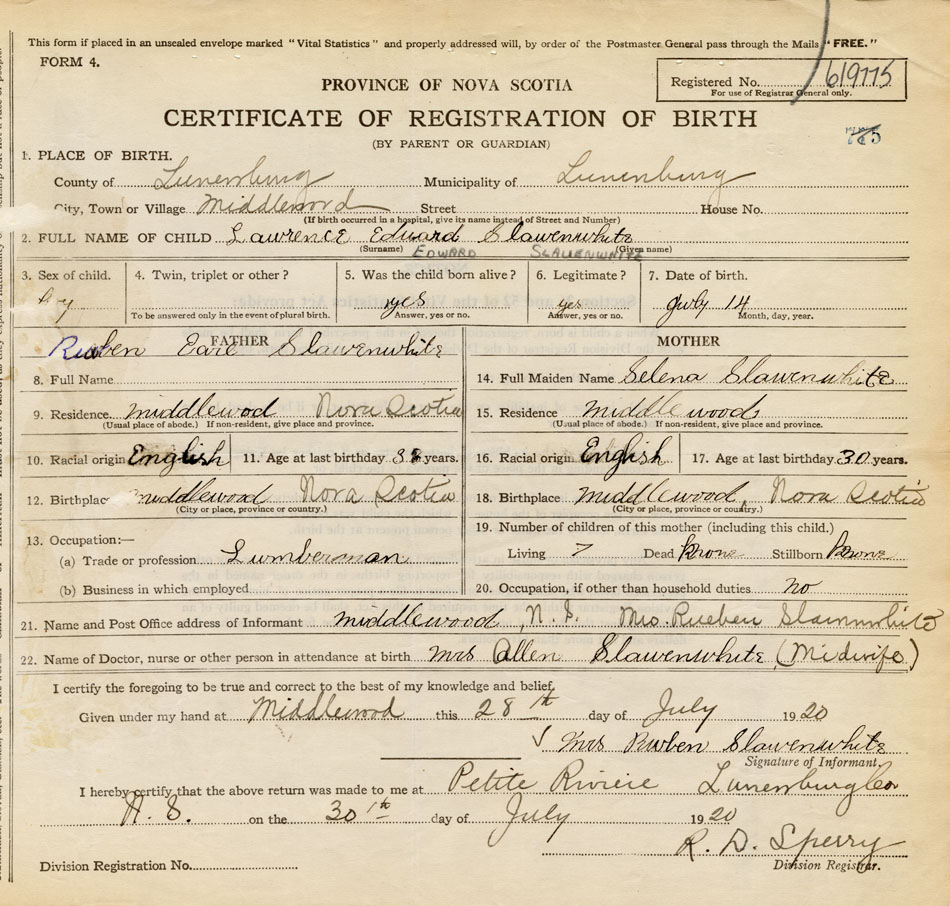 This form if placed in an unsealed envelope marked "Vital Statistics" and properly addressed will, by order of the Postmaster General pass through the Mails "FREE."
FORM 4.
PROVINCE OF NOVA SCOTIA
Registered No. 619775
For use of Registrar General only.
CERTIFICATE OF REGISTRATION OF BIRTH
(BY PARENT OR GUARDIAN)
1. PLACE OF BIRTH.
County of Lunenburg Municipality of Lunenburg
City, Town or Village Middlewood Street House No.
(If birth occurred in a hospital, give its name instead of Street and Number)
2. FULL NAME OF CHILD Lawrence Eduard Slawenwhite
(Surname) (Given name)
EDWARD SLAUENWHITE
3. Sex of child. 4. Twin, triplet or other? 5. Was the child born alive? 6. Legitimate? 7. Date of birth.
boy yes yes July 14
To be answered only in the event of plural birth. Answer, yes or no. Answer, yes or no. Month, day, year.
FATHER MOTHER
Reuben Earle Slawenwhite
8. Full Name 14. Full Maiden Name Selena Slawenwhite
9. Residence middlewood Nova Scotia 15. Residence middlewood
(Usual place of abode.) If non-resident, give place and province. (Usual place of abode.) If non-resident, give place and province.
10. Racial origin English 11. Age at last birthday years. 16. Racial origin English 17. Age at last birthday 30 years.
12. Birthplace middlewood Nova Scotia 18. Birthplace middlewood, Nova Scotia
(City or place, province or country.) (City or place, province or country.)
13. Occupation:— 19. Number of children of this mother (including this child.)
(a) Trade or profession Lumberman Living 7 Dead none Stillborn none
(b) Business in which employed 20. Occupation, if other than household duties no
21. Name and Post Office address of Informant middlewood, N. S. Mrs. Rueben Slawnwhite
22. Name of Doctor, nurse or other person in attendance at birth mrs Allen Slawenwhite (Midwife)
I certify the foregoing to be true and correct to the best of my knowledge and belief.
Given under my hand at Middlewood this 28th day of July 1920
mrs Ruben Slawenwhite
Signature of Informant.
I hereby certify that the above return was made to me at Petite Riviere Lunenburg Co
N. S. on the 30th day of July 1920
R. D. Sperry
Division Registration No. Division Registrar.